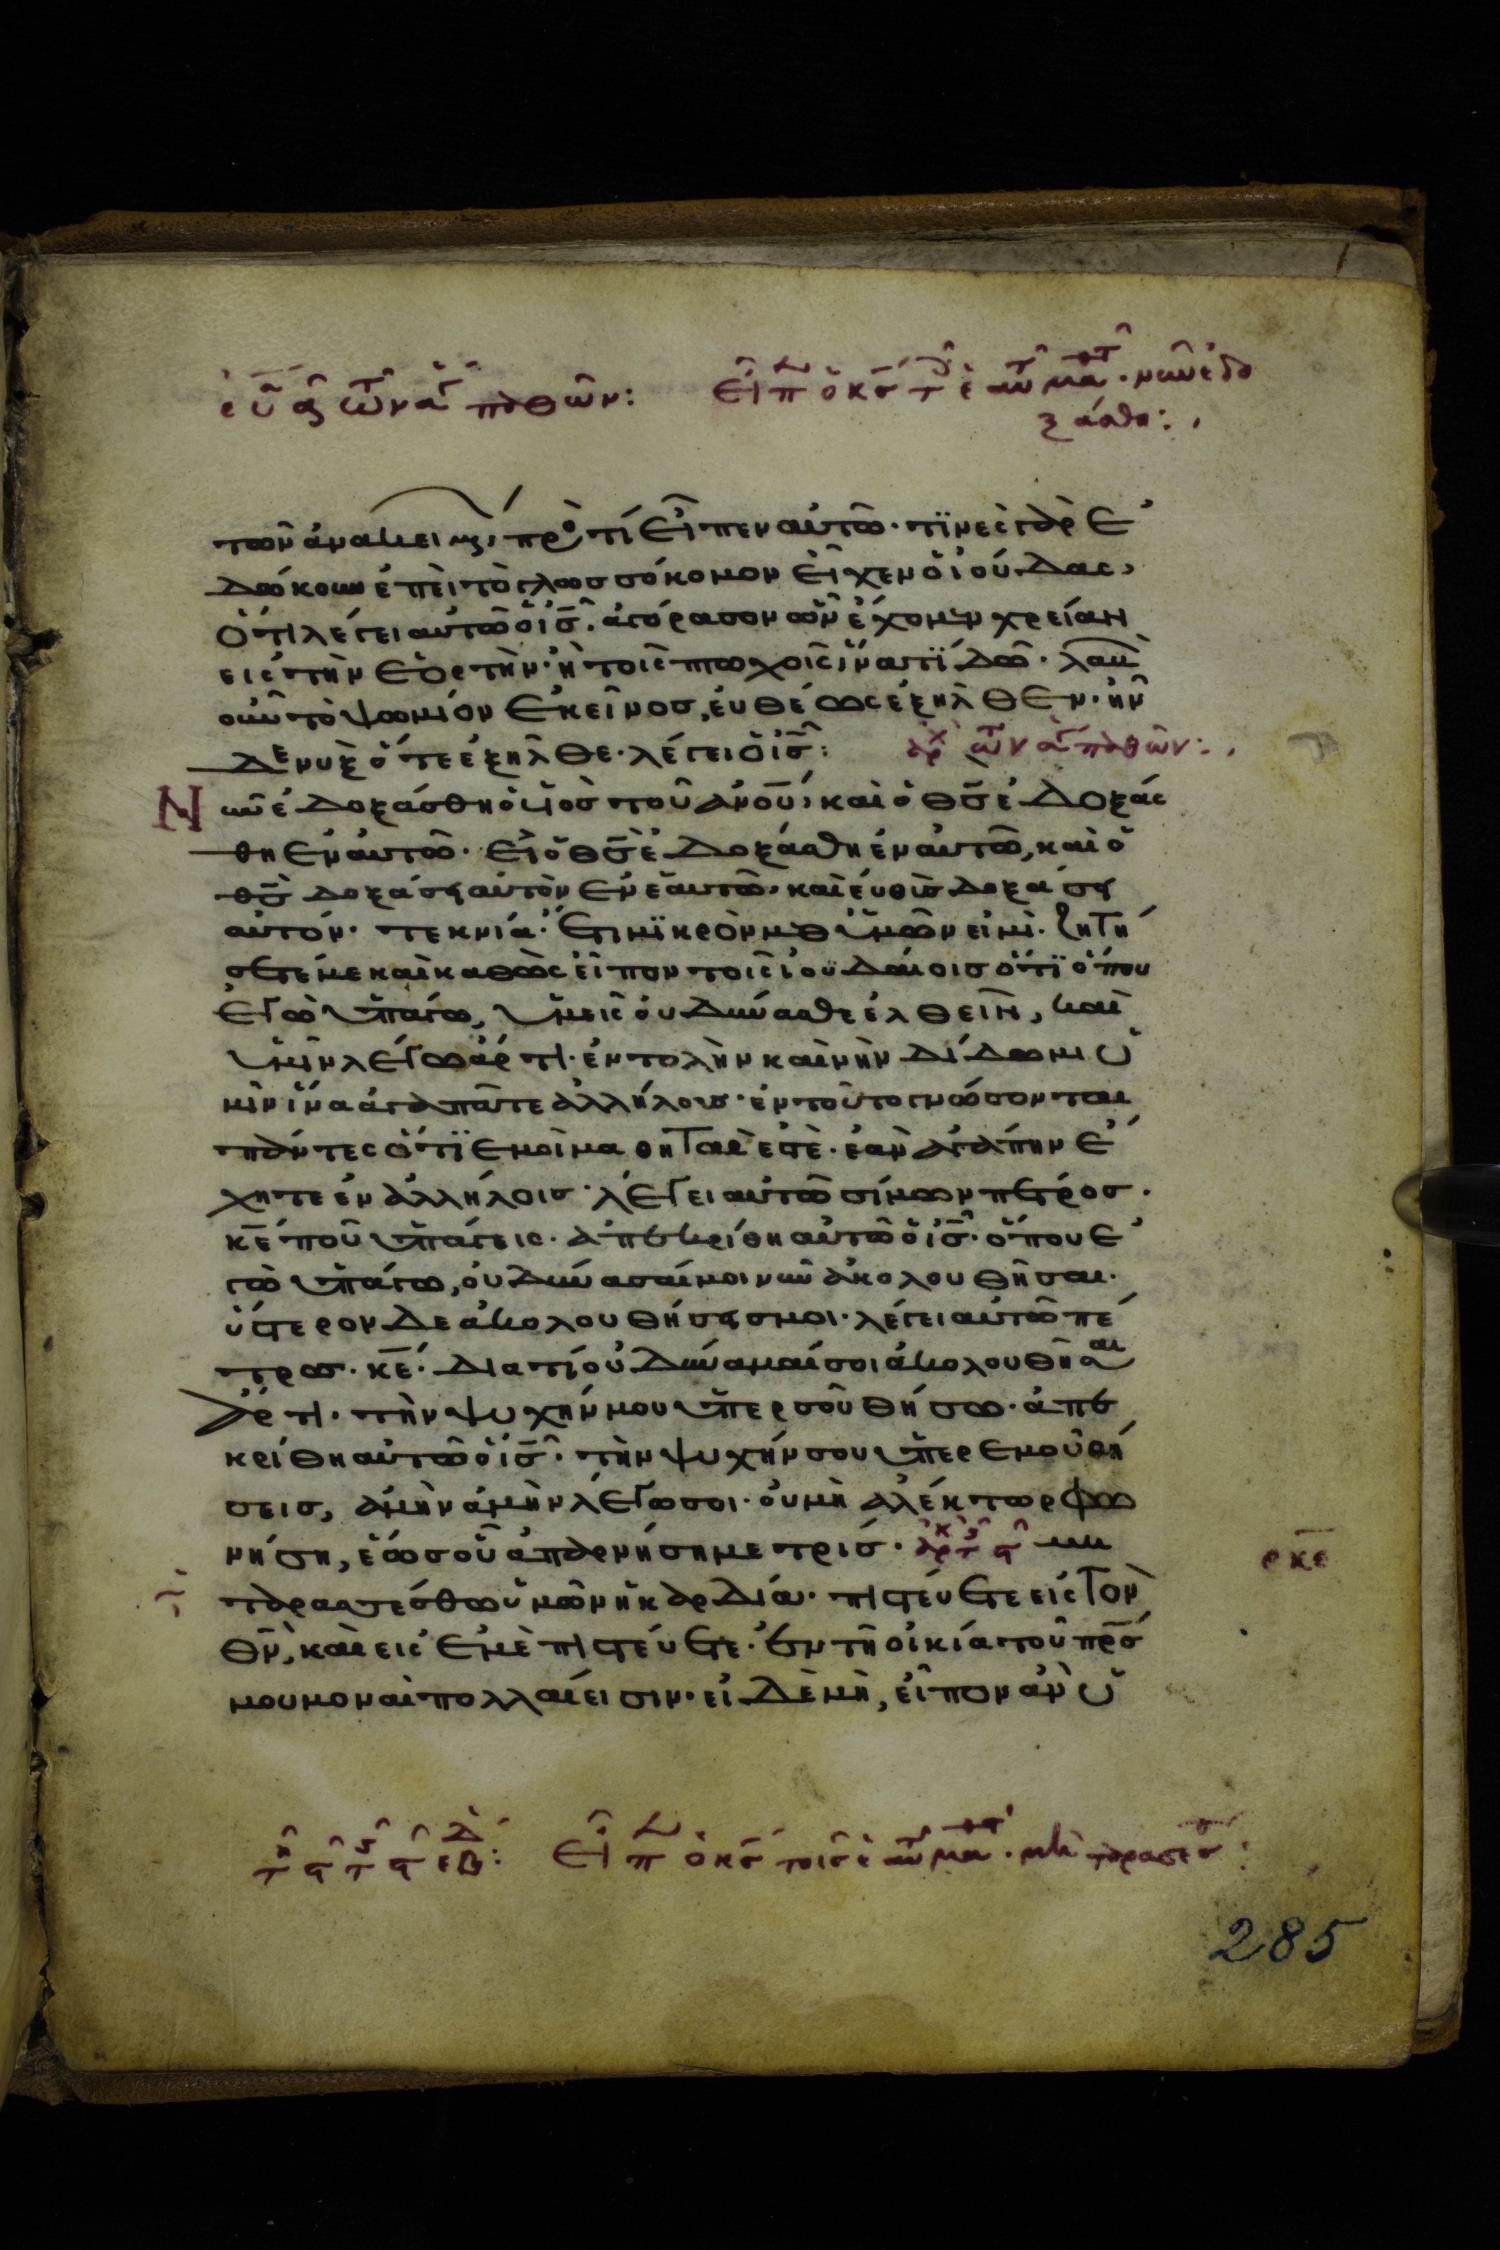 εὐα τῶν ἁγ παθῶν: εἶπ ὁ κς τ ἑ αὐ μαθτ. νῦν ἐδο
ξάσθη:
τῶν ἀνακει πρὸ τί εἶπεν αὐτῶ. τϊνὲς γὰρ ἐ
δώκουν ἐπὲι τὸ γλωσσόκομον εἶχεν ὁ ϊούδας,
ὅτι λέγει αὐτῶ ὁ ις. ἀγόρασον ὧν ἔχομεν χρείαν
εις τὴν ἑορτὴν. ἢ τοις πτωχοις ἵνα τϊ δῶ. λαβὼν
οὖν τὸ ψωμίον ἐκεῖνος, ἐυθέως ἐξηλθεν. ἦν
δε νυξ ὅτε ἐξηλθε. λέγει ὁ ις: ἀρχ τῶν ἁγ παθῶν:
Νῦν ἐδοξάσθη ὁ υἱὸς τοῦ ἀνου, και ὁ θς ἐδοξάς
θη ἐν αυτῶ. εἰ ὁ θς ἐδοξάσθη ἐν αυτῶ, και ὁ
θς δοξάσει αὐτὸν ἐν ἑαυτῶ. και ἐυθὺς δοξάσει
αὐτόν. τεκνία. ἔτι μϊκρὸν μεθ ὑμῶν εἰμὶ. ζητή
σετέ με και καθὼς εἶπον τοις ἰουδαίοις ὅτϊ ὅπου
ἐγὼ ὑπάγω, ὑμεις ὀυ δύνασθε ἐλθεῖν, και
ὑμῖν λέγω ἄρτι. ἐντολὴν καινὴν δίδωμι ὑ
μῖν ἵνα ἀγαπᾶτε ἀλλήλους. ἐν τούτο γνώσονται
πάντες ὅτϊ ἐμοὶ μαθηταὶ ἐστὲ. ἐὰν ἀγάπην ἔ
χητε ἐν ἀλλήλοις. λέγει αυτῶ σίμων πέτρος.
κε ποῦ ὑπάγεις. ἀπεκρίθη αὐτῶ ὁ ις. ὅπου ἐ
γὼ ὑπάγω, ὀυ δύνασαί μοι νῦν ἀκολουθῆσαι.
ὕστερον δε ἀκολουθήσεις μοι. λέγει αὐτῶ πέ
τρος. κε. διατί οὐ δύναμαί σοι ἀκολουθῆσαι
ἄρτι. τὴν ψυχήν μου ὑπερ σοῦ θήσω. ἀπε
κρίθη αὐτῶ ὁ ις. τὴν ψυχήν σου ὑπερ ἐμοῦ θή
σεις, ἀμὴν ἀμὴν λέγω σοι. ὀυ μὴ ἀλέκτωρ φω
νήση, ἕως οὗ ἀπαρνήση με τρίς. μὴ
ταρασσέσθω ὑμῶν ἡ καρδία. πιστεύετε εἰς τὸν
θν, και εις ἐμὲ πιστεύετε. ἐν τῆ οἰκία τοῦ πρς
μου μοναὶ πολλαί εισιν. εἰ δὲ μὴ, εἶπον ἂν ὑ
εἶπ ὁ κς τοῖς ἑ αὐ μαθτ. μὴ ταρασσεσθ:
285